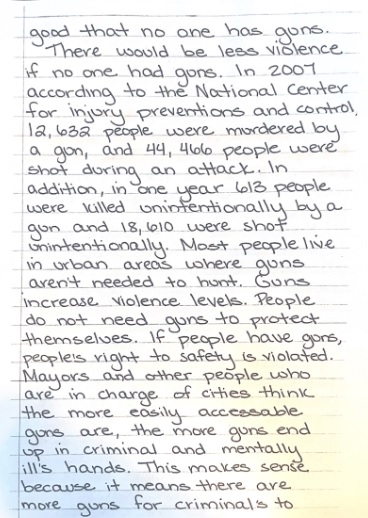 good that no one has guns.
There would be less violence
if no one had guns. In 2007
according to the National Center
for injury preventions and control,
12,632 people were murdered by
a gun, and 44,466 people were
shot during an attack. In
addition, in one year 613 people
were killed unintentionally by a
gun and 18,610 were shot
unintentionally. Most people live
in urban areas where guns
aren't needed to hunt. Guns
increase violence levels. People
do not need guns to protect
themselves. If people have guns,
people's right to safety is violated.
Mayors and other people who
are in charge of cities think
the more easily accessable
guns are, the more guns end
up in criminal and mentally
ill's hands. This makes sense
because it means there are
more guns for criminal's to